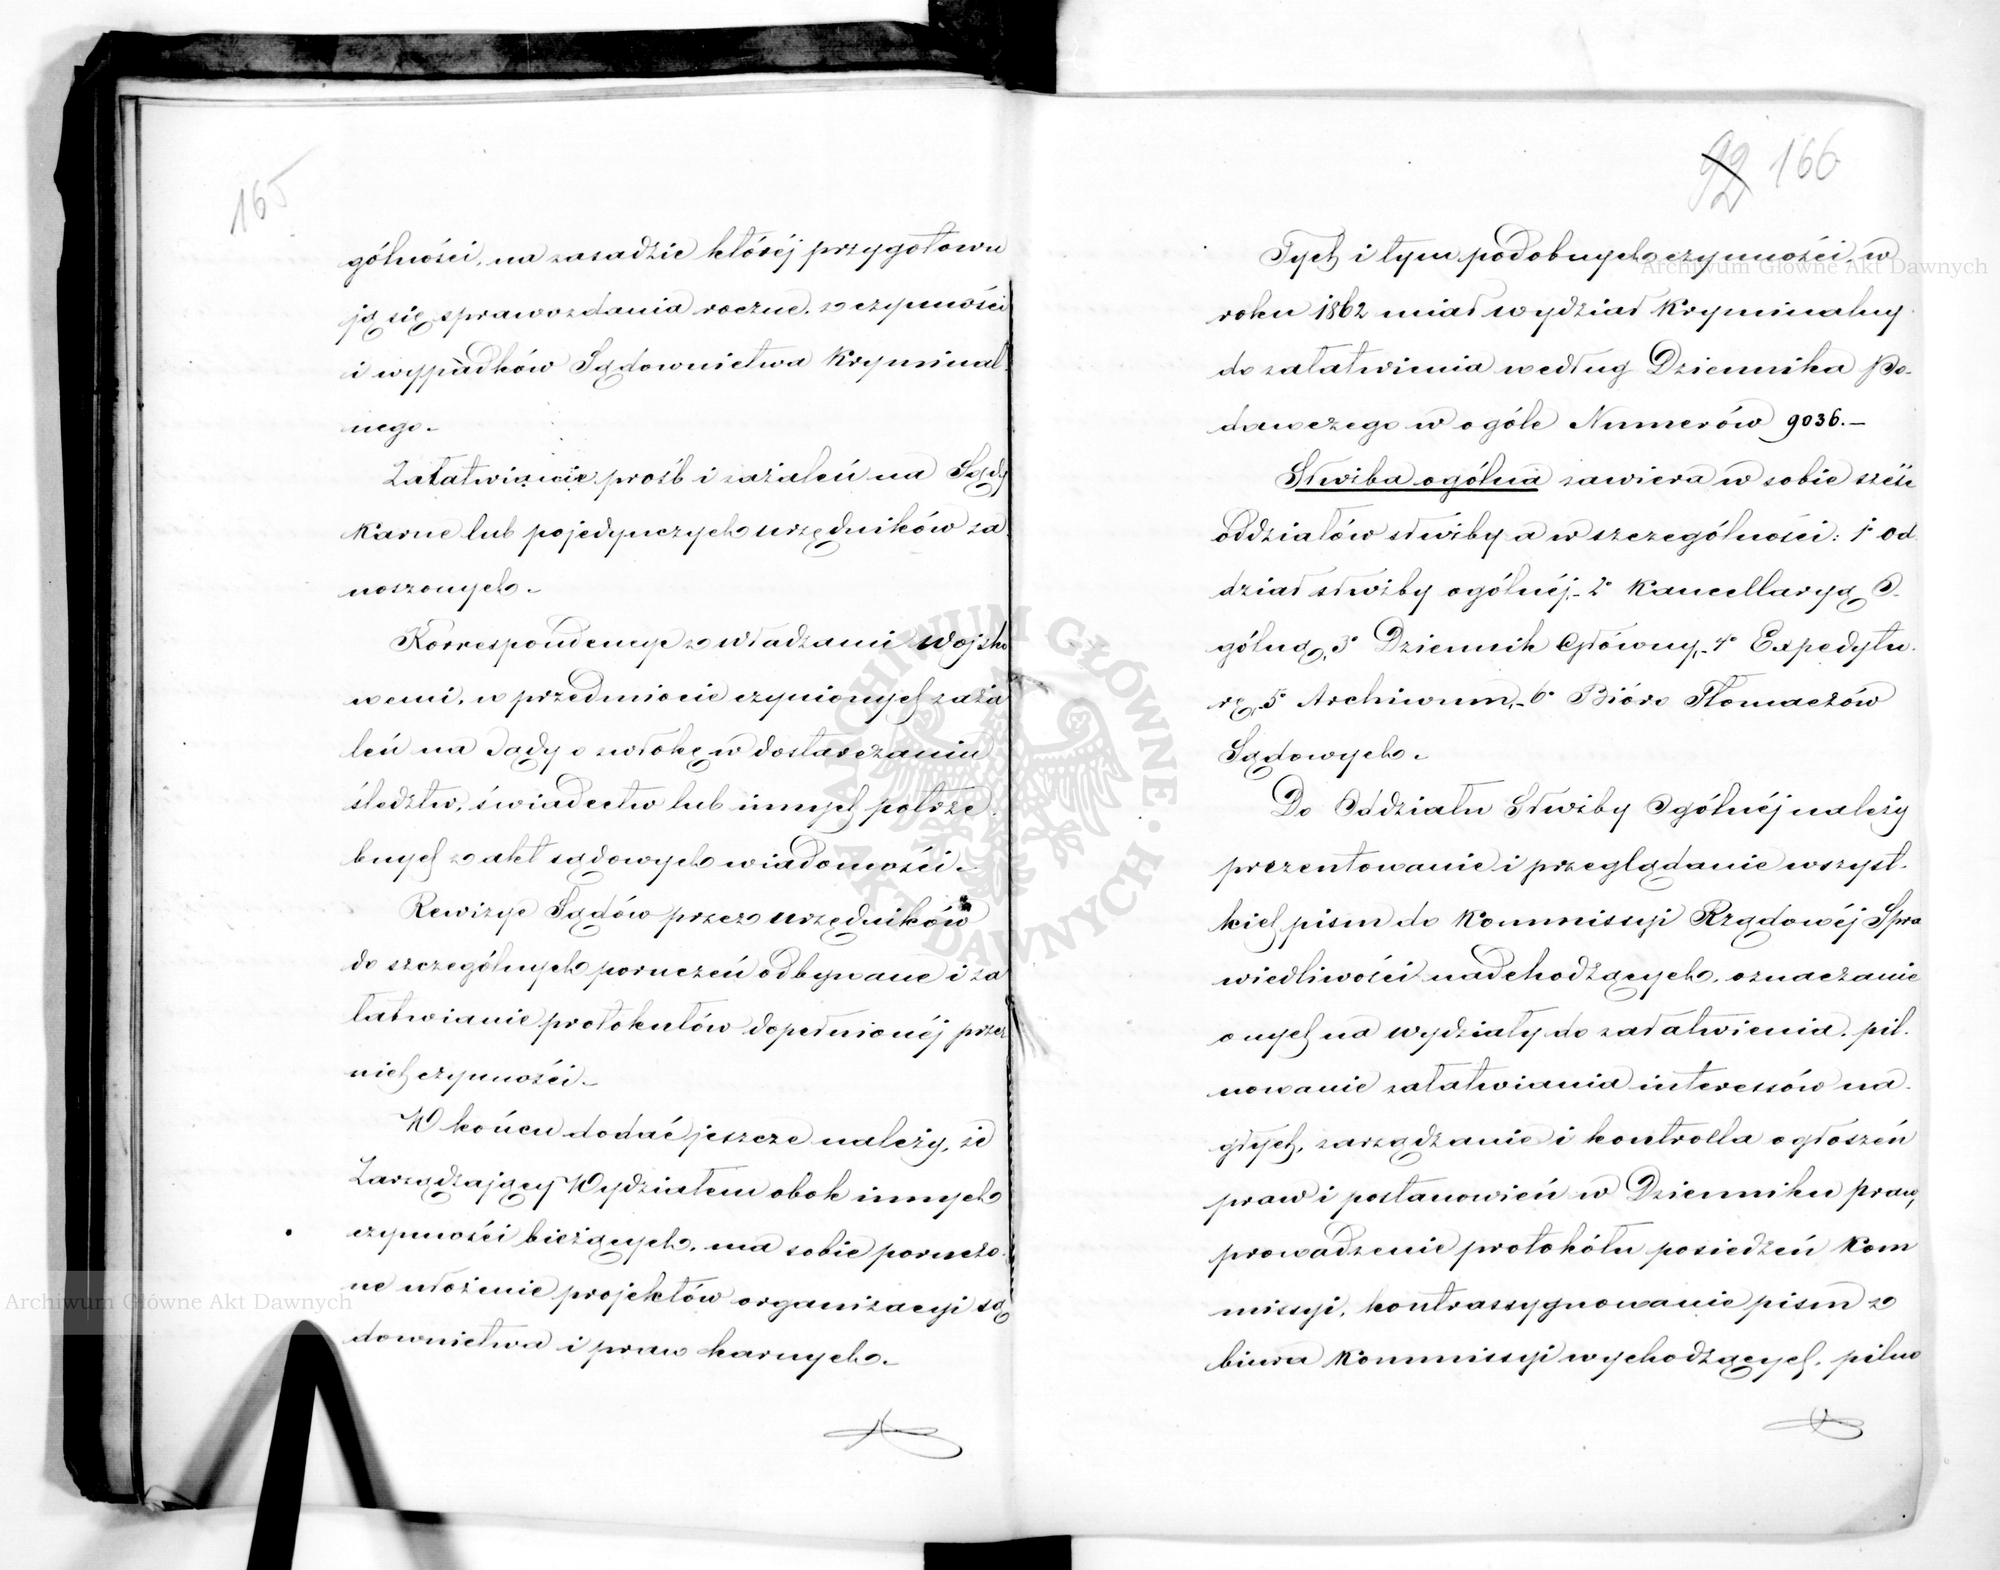 165
gólności, na zasadzie któréj przygotowu
ją się sprawozdania roczne, z czynności
i wypadków Sądownictwa Kryminal-
nego.-
Załatwianie próśb i zażaleń na Sądy
Karne lub pojedynczych urzędników za-
noszonych.-
Korrespondencye z władzami Wojsko
wemi, w przedmiocie czynionych zaża
leń na Sądy o zwłokę w dostarczaniu
śledztw, świadectw lub innych potrze-
bnych z akt sądowych wiadomości.-
Rewizye Sądów przez urzędników
do szczególnych poruczeń odbywane i za
łatwianie protokułów dopełnionéj przez
nich czynności.-
W końcu dodać jeszcze należy, że
Zarządzający Wydziałem obok innych
czynności bieżących, ma sobie poruczo-
ne ułożenie projektów organizacyi są
downictwa i praw karnych.-
92 166
Tych i tym podobnych czynności, w
roku 1862 miał wydział Kryminalny
do załatwienia według Dziennika Po-
dawczego w ogóle Numerów 9036.-
Służba ogólna zawiera w sobie sześć
Oddziałów służby a w szczególności: 1° Od
dział służby ogólnéj,- 2° Kancellaryą O-
gólną, 3° Dziennik Główny,- 4° Expedytu-
rę,- 5° Archiwum,- 6° Bióro Tłomaczów
Sądowych.-
Do Oddziału Służby Ogólnéj należy
prezentowanie i przeglądanie wszyst-
kich pism do Kommissyi Rządowéj Spra
wiedliwości nadchodzących, oznaczanie
onych na wydziały do załatwienia, pil-
nowanie załatwiania interessów na-
głych, zarządzanie i kontrolla ogłoszeń
praw i postanowień w Dzienniku praw,
prowadzenie protokółu posiedzeń Kom
missyi, kontrassygnowanie pism z
biura Kommissyi wychodzących, pilno
ARCHIWUM GŁÓWNE AKT DAWNYCH
Archiwum Główne Akt Dawnych
Archiwum Główne Akt Dawnych